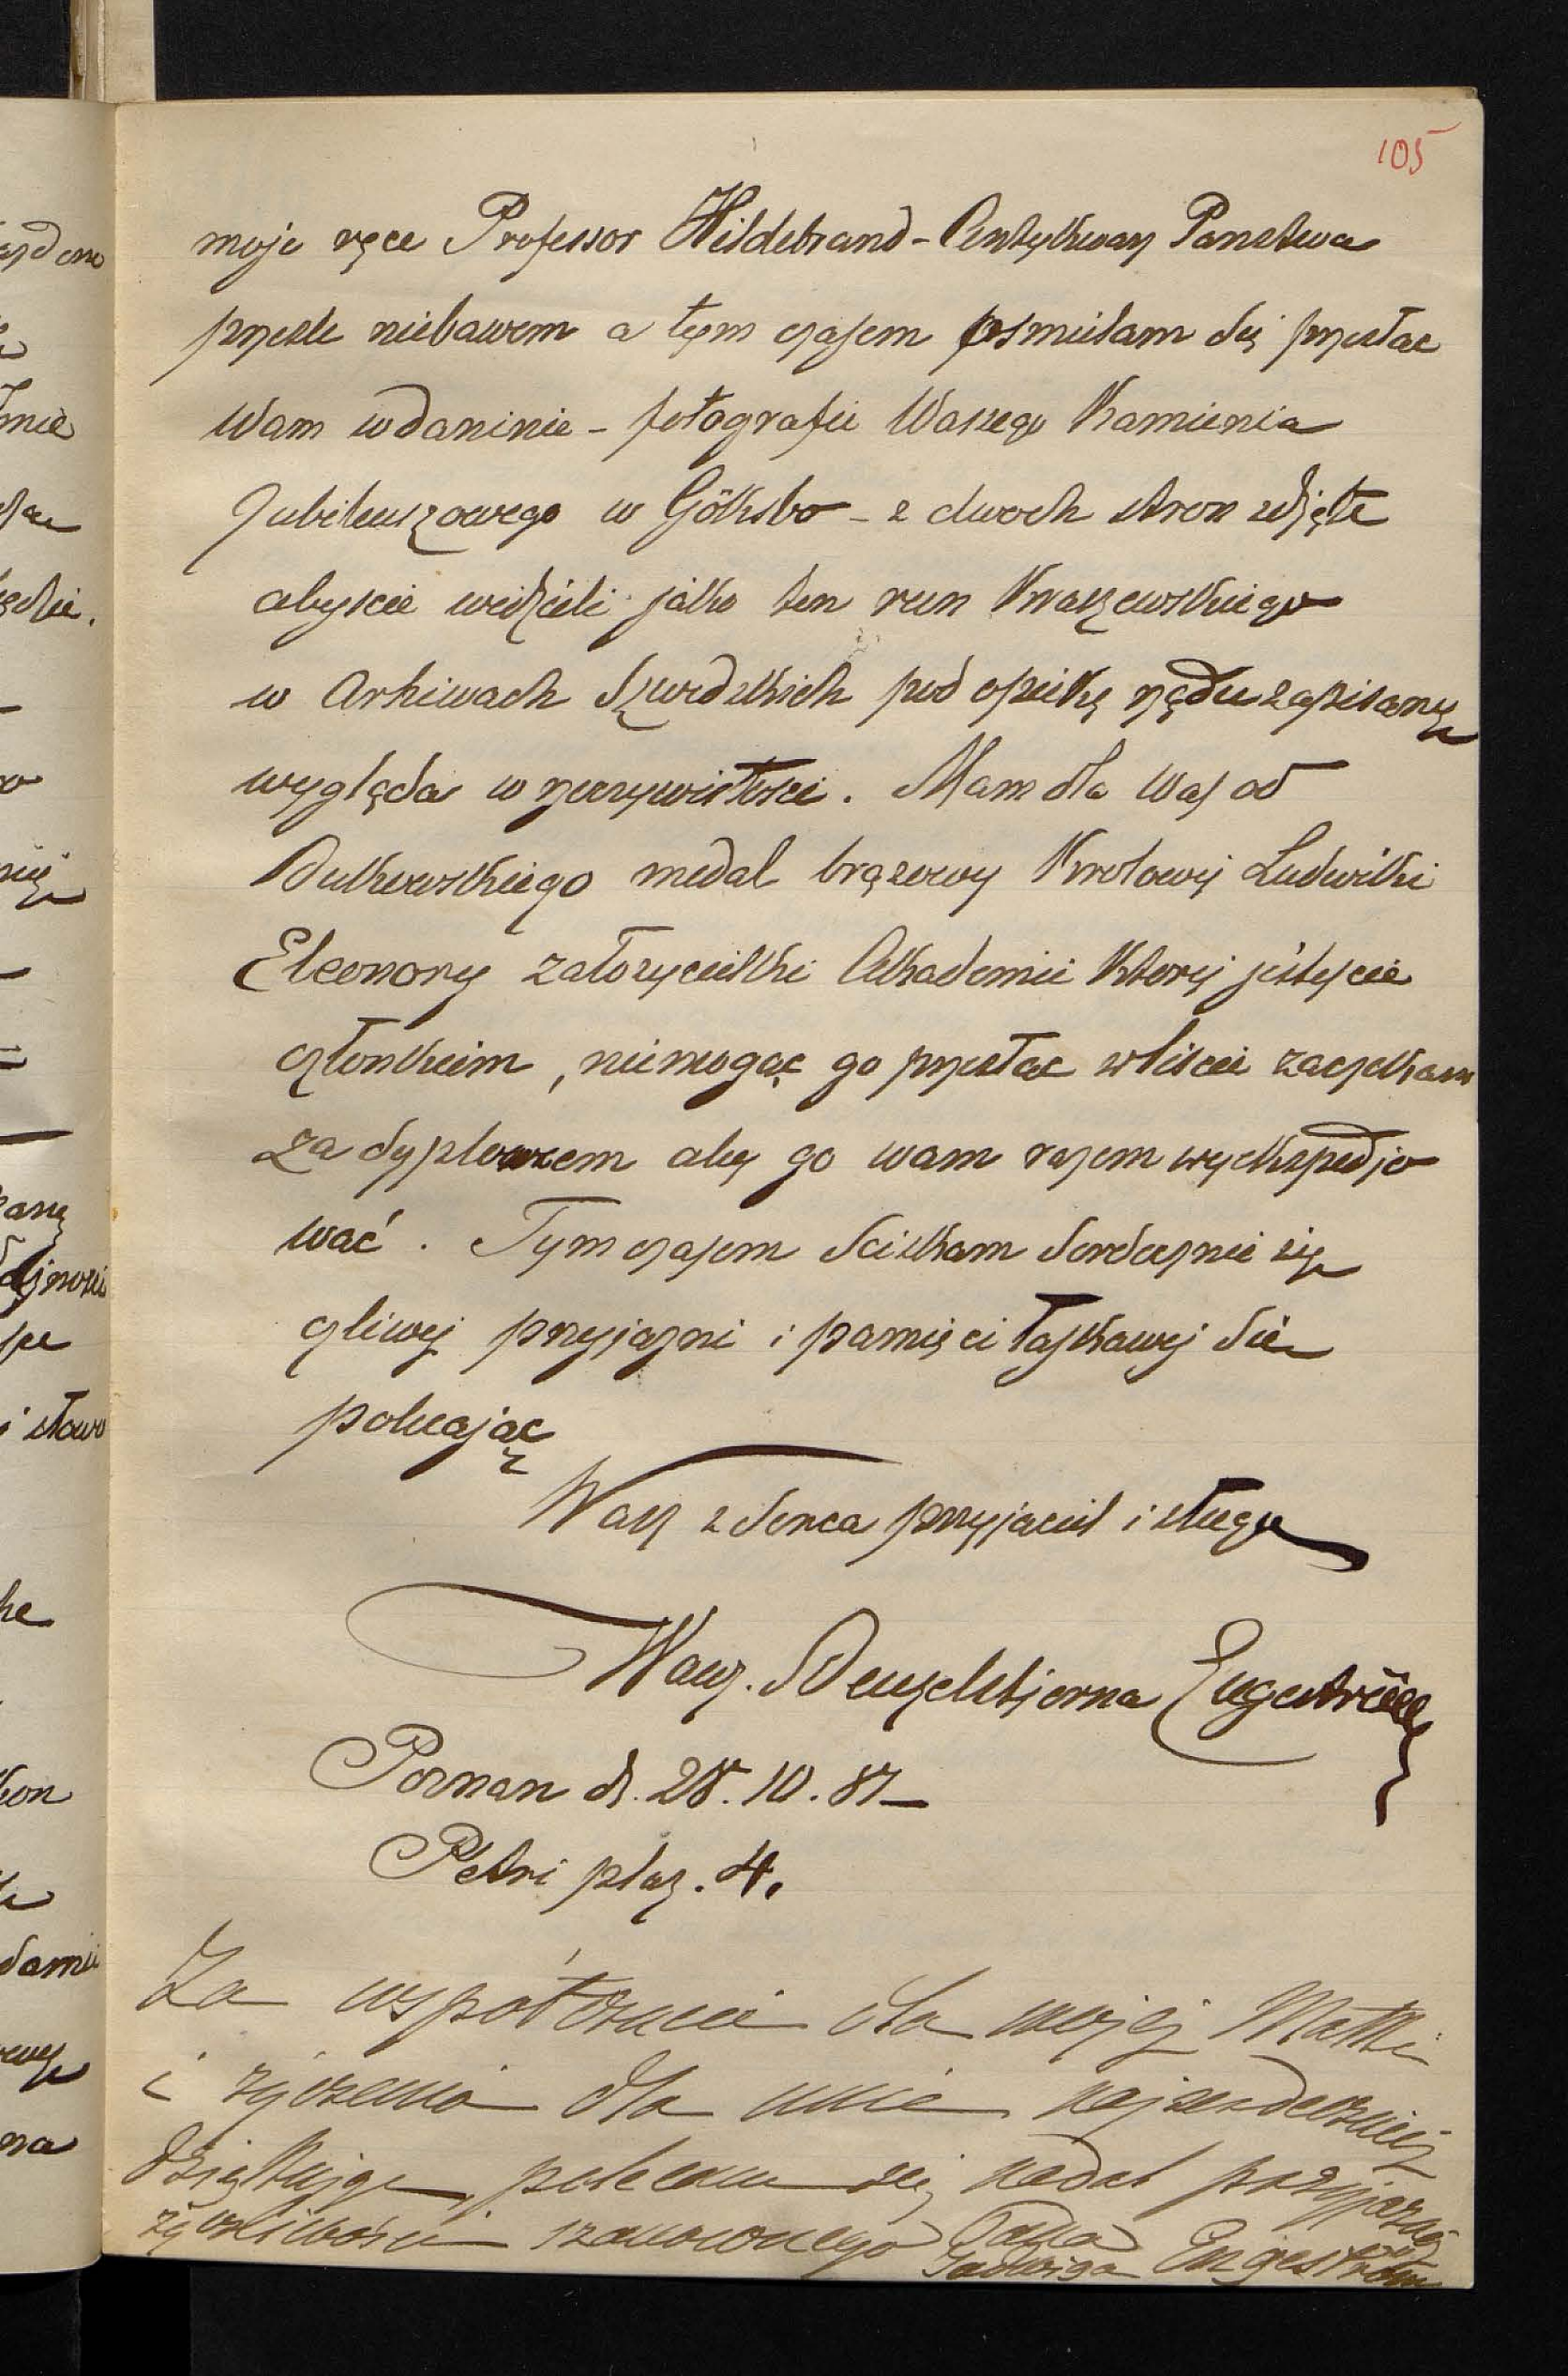 105
moje ręce Professor Hildebrand - Antykwary Panstwa
przesle niebawem a tym czasem osmielam się przesłac
Wam w daninie - fotografie Waszego Kamienia
Jubileuszowego w Göksbo - z dwoch stron zdjęte
abyscie widzieli jako ten run Kraszewskiego
w Arhiwach Szwedzkich pod opiekę rządu zapisany
wygląda w rzeczywistosci. Mam dla Was od
Bukowskiego medal brązowy Krolowej Ludwiki
Eleonory założycielki Akademii Ktorej jestescie
członkiem, niemogąc go przesłac w liscie zaczekam
za dyplomem aby go wam razem wyekspedjo
wać. Tym czasem Sciskam Serdecznie ży
czliwej przyjazni i pamięci łaskawej Się
polecając
Wasz z Serca przyjaciel i sługa
Wawz. Benzelstjerna Engeström
Poznan d. 28.10.87
Petri plaz. 4.
Za współczucie dla mojej Matki
i życzenia dla mnie najserdeczniej
Dziękuję, polecam się nadal przyjaznej
życzliwości szanownego Pana
Jadwiga Engeström